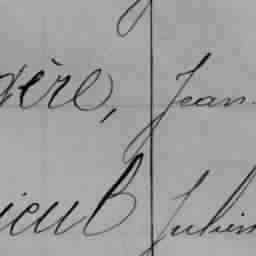 ère, Jean-
ieul Julien